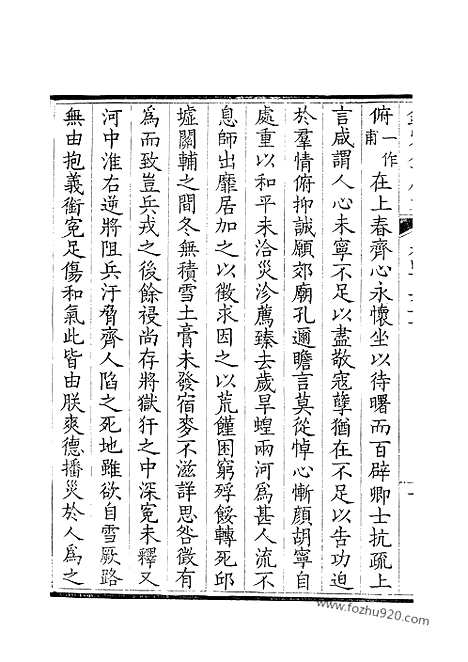 俯一作甫在上春齊心永懷坐以待曙而百辟卿士抗疏上
言咸謂人心未寧不足以盡敬寇孽猶在不足以告功迫
於羣情俯抑誠願郊廟孔邇瞻言莫從悼心慚顔胡寧自
處重以和平未洽災沴薦臻去歲旱蝗兩河爲甚人流不
息師出靡居加之以徵求因之以荒饉困窮殍餒轉死邱
墟關輔之間冬無積雪土膏未發宿麥不滋詳思咎徵有
爲而致豈兵戎之後餘祲尚存將獄犴之中深冤未釋又
河中淮右逆將阻兵汙脅齊人陷之死地雖欲自雪厥路
無由抱義銜冤足傷和氣此皆由朕爽德播災於人爲之
www.fozhu920.com